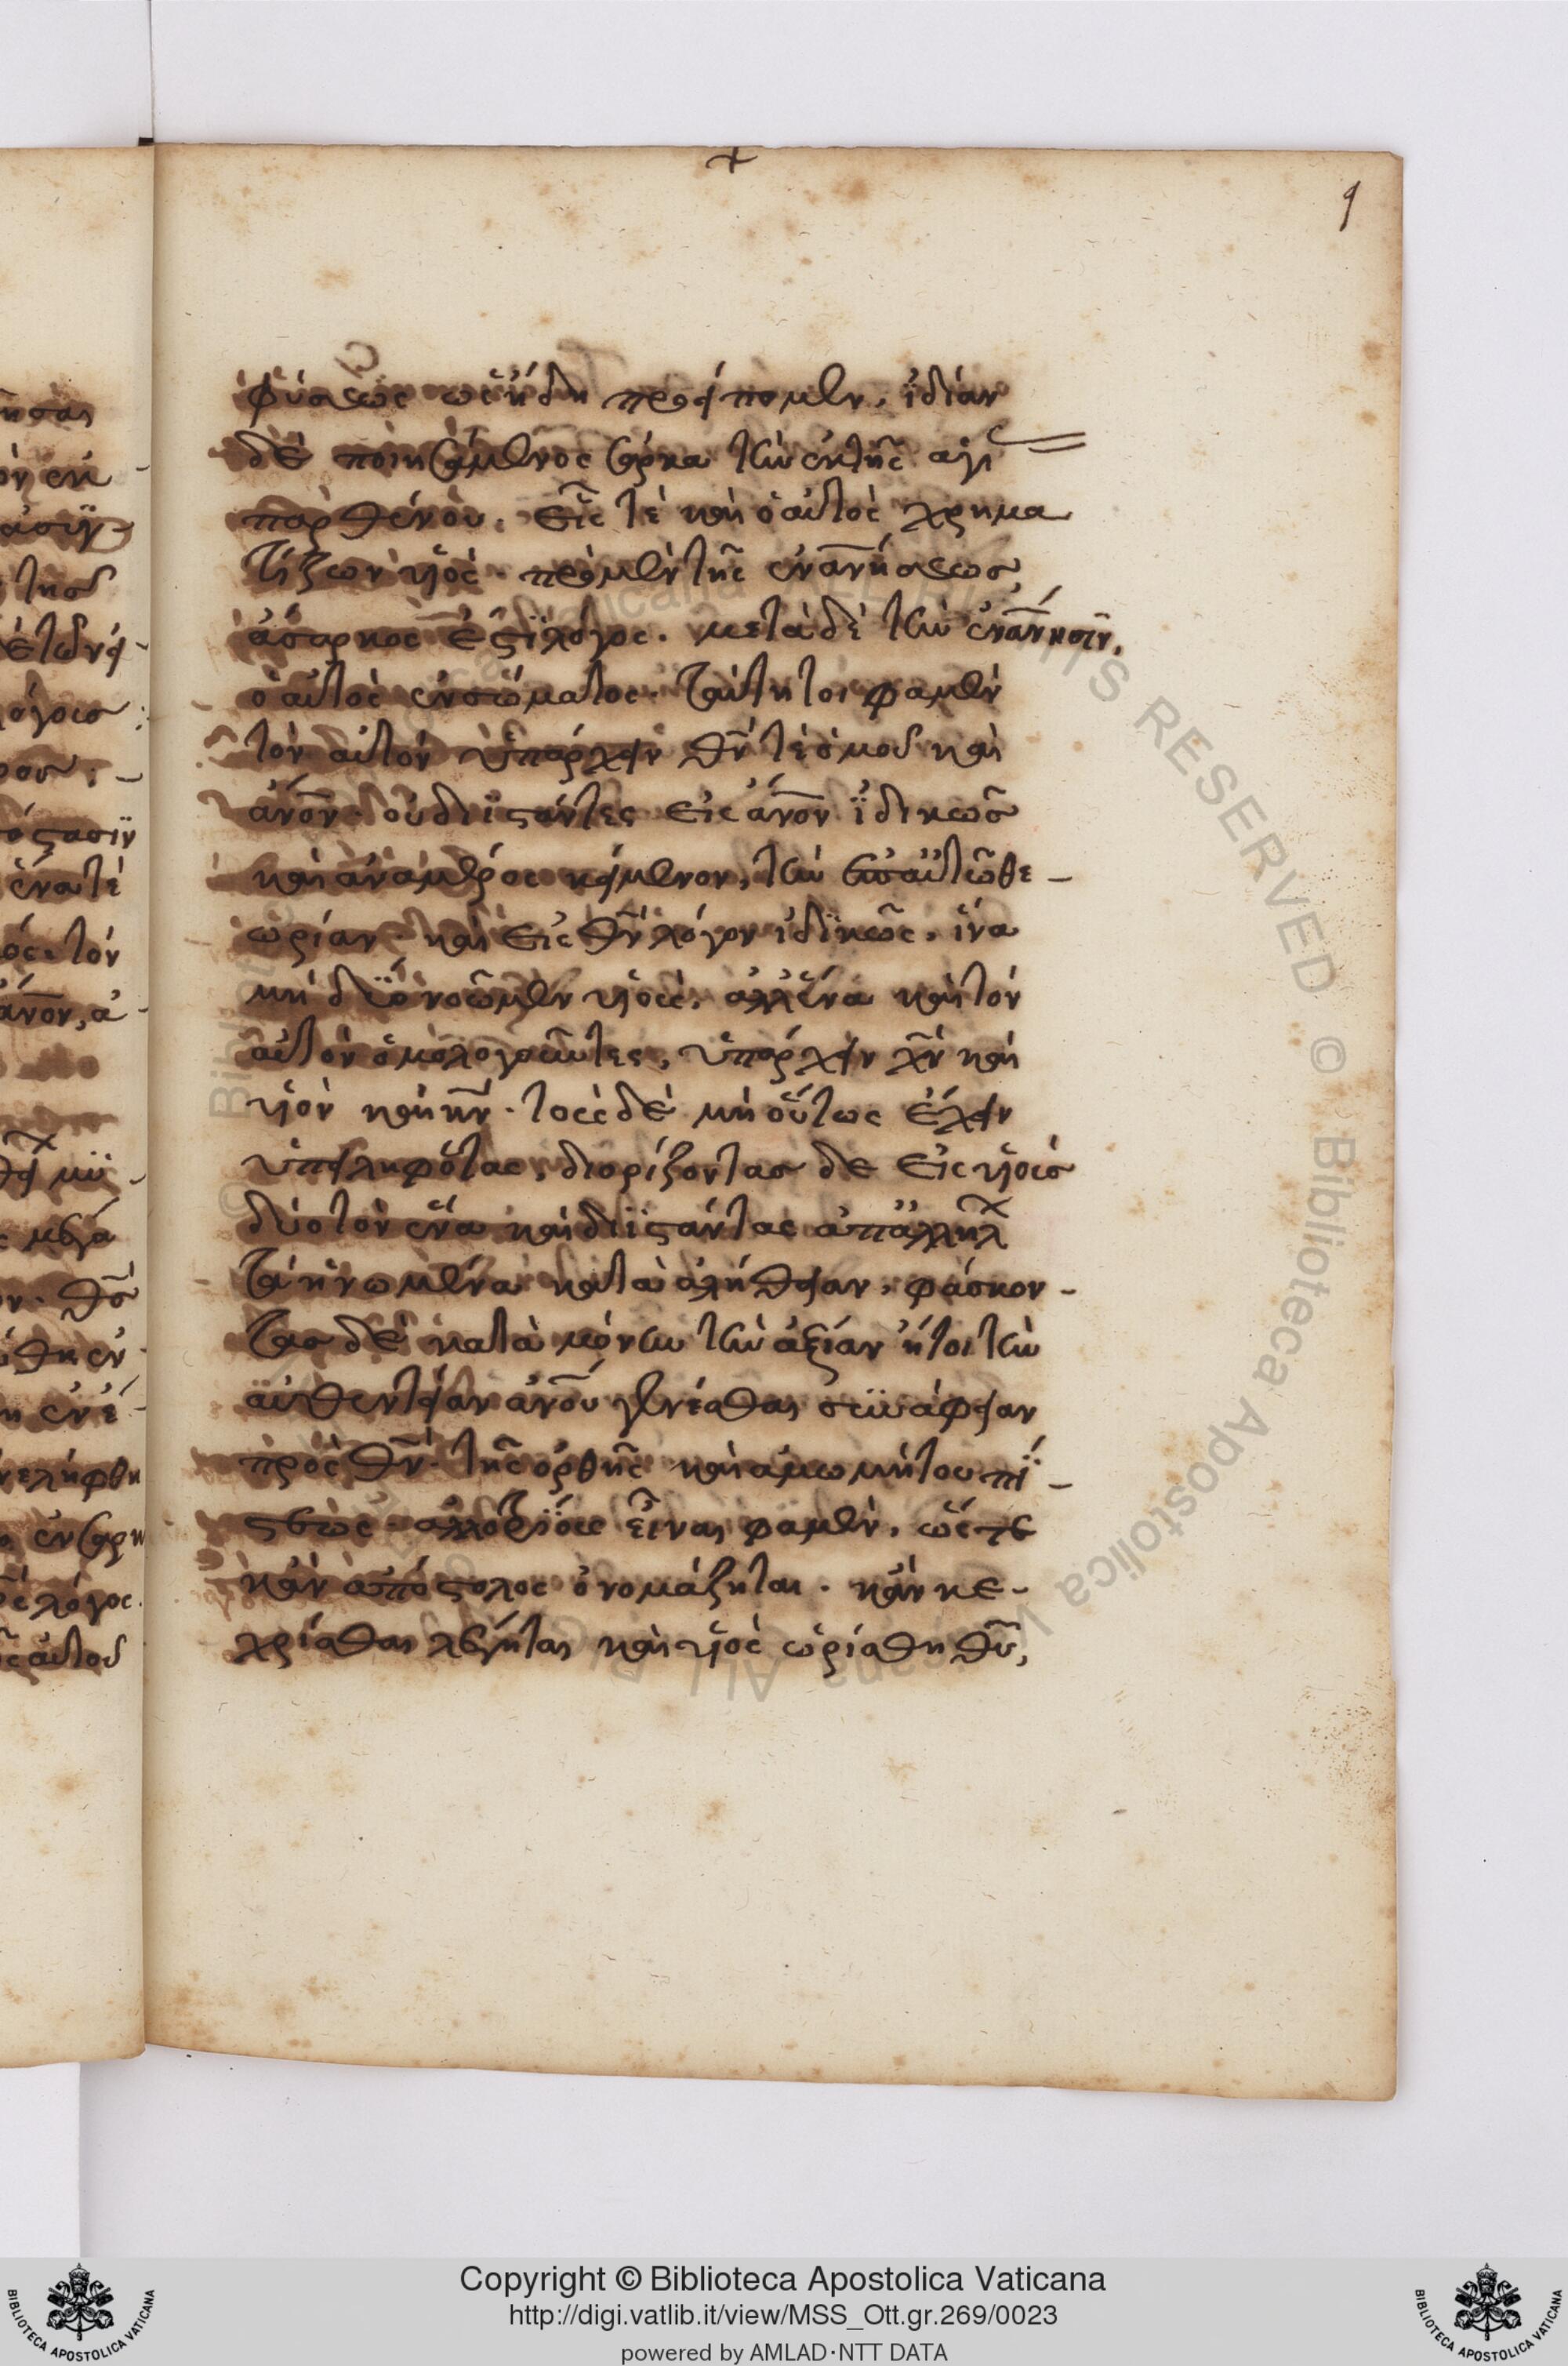 9
φύσεως ὡς ἤδη προείπομεν, ἰδίαν
δὲ ποιησάμενος σάρκα τὴν ἐκ τῆς ἁγί
παρθένου. εἷς τὲ καὶ ὁ αὐτὸς χρημα
τίζων υἱός· πρὸ μὲν τῆς ἐνανήσεως
ἄσαρκος ἐστὶ λόγος. μετὰ δὲ τὴν ἐνανησιν,
ὁ αὐτὸς ἐνσώματος. ταύτητοι φαμὲν
τὸν αὐτὸν ὑπάρχειν θν τὲ ὁμοῦ καὶ
ἄνον. οὐ διϊστάντες εἰς ἄνον ἰδικῶς
καὶ ἀναμέρος κείμενον, τὴν ἐπ αὐτῶ θε-
ωρίαν. καὶ εἰς θν λόγον ἰδικῶς. ἵνα
μὴ δύο νοῶμεν υἱοὺς, ἀλλ ἕνα καὶ τὸν
αὐτὸν ὁμολογοῦντες, ὑπάρχειν χν καὶ
υἱὸν καὶ κν. τοὺς δὲ μὴ οὕτως ἔχειν
ὑπειληφότας, διορίζοντας δὲ εἰς υἱοὺς
δύο τὸν ἕνα καὶ διϊστάντας ἀπ ἀλλήλ
τὰ ἡνωμένα κατὰ ἀλήθειαν, φάσκον-
τας δὲ κατὰ μόνην τὴν ἀξίαν ἤτοι τὴν
αὐθεντείαν ἀνου γενέσθαι συνάφειαν
πρὸς θν. τῆς ὀρθῆς καὶ ἀμωμήτου πί-
στεως. ἀλλοτρίους εἶναι φαμὲν, ὥστε
κἂν ἀπόστολος ὀνομάζηται. κἂν κε-
χρίσθαι λέγηται καὶ υἱὸς ὡρίσθη θυ,
Copyright © Biblioteca Apostolica Vaticana
http://digi.vatlib.it/view/MSS_Ott.gr.269/0023
powered by AMLAD·NTT DATA